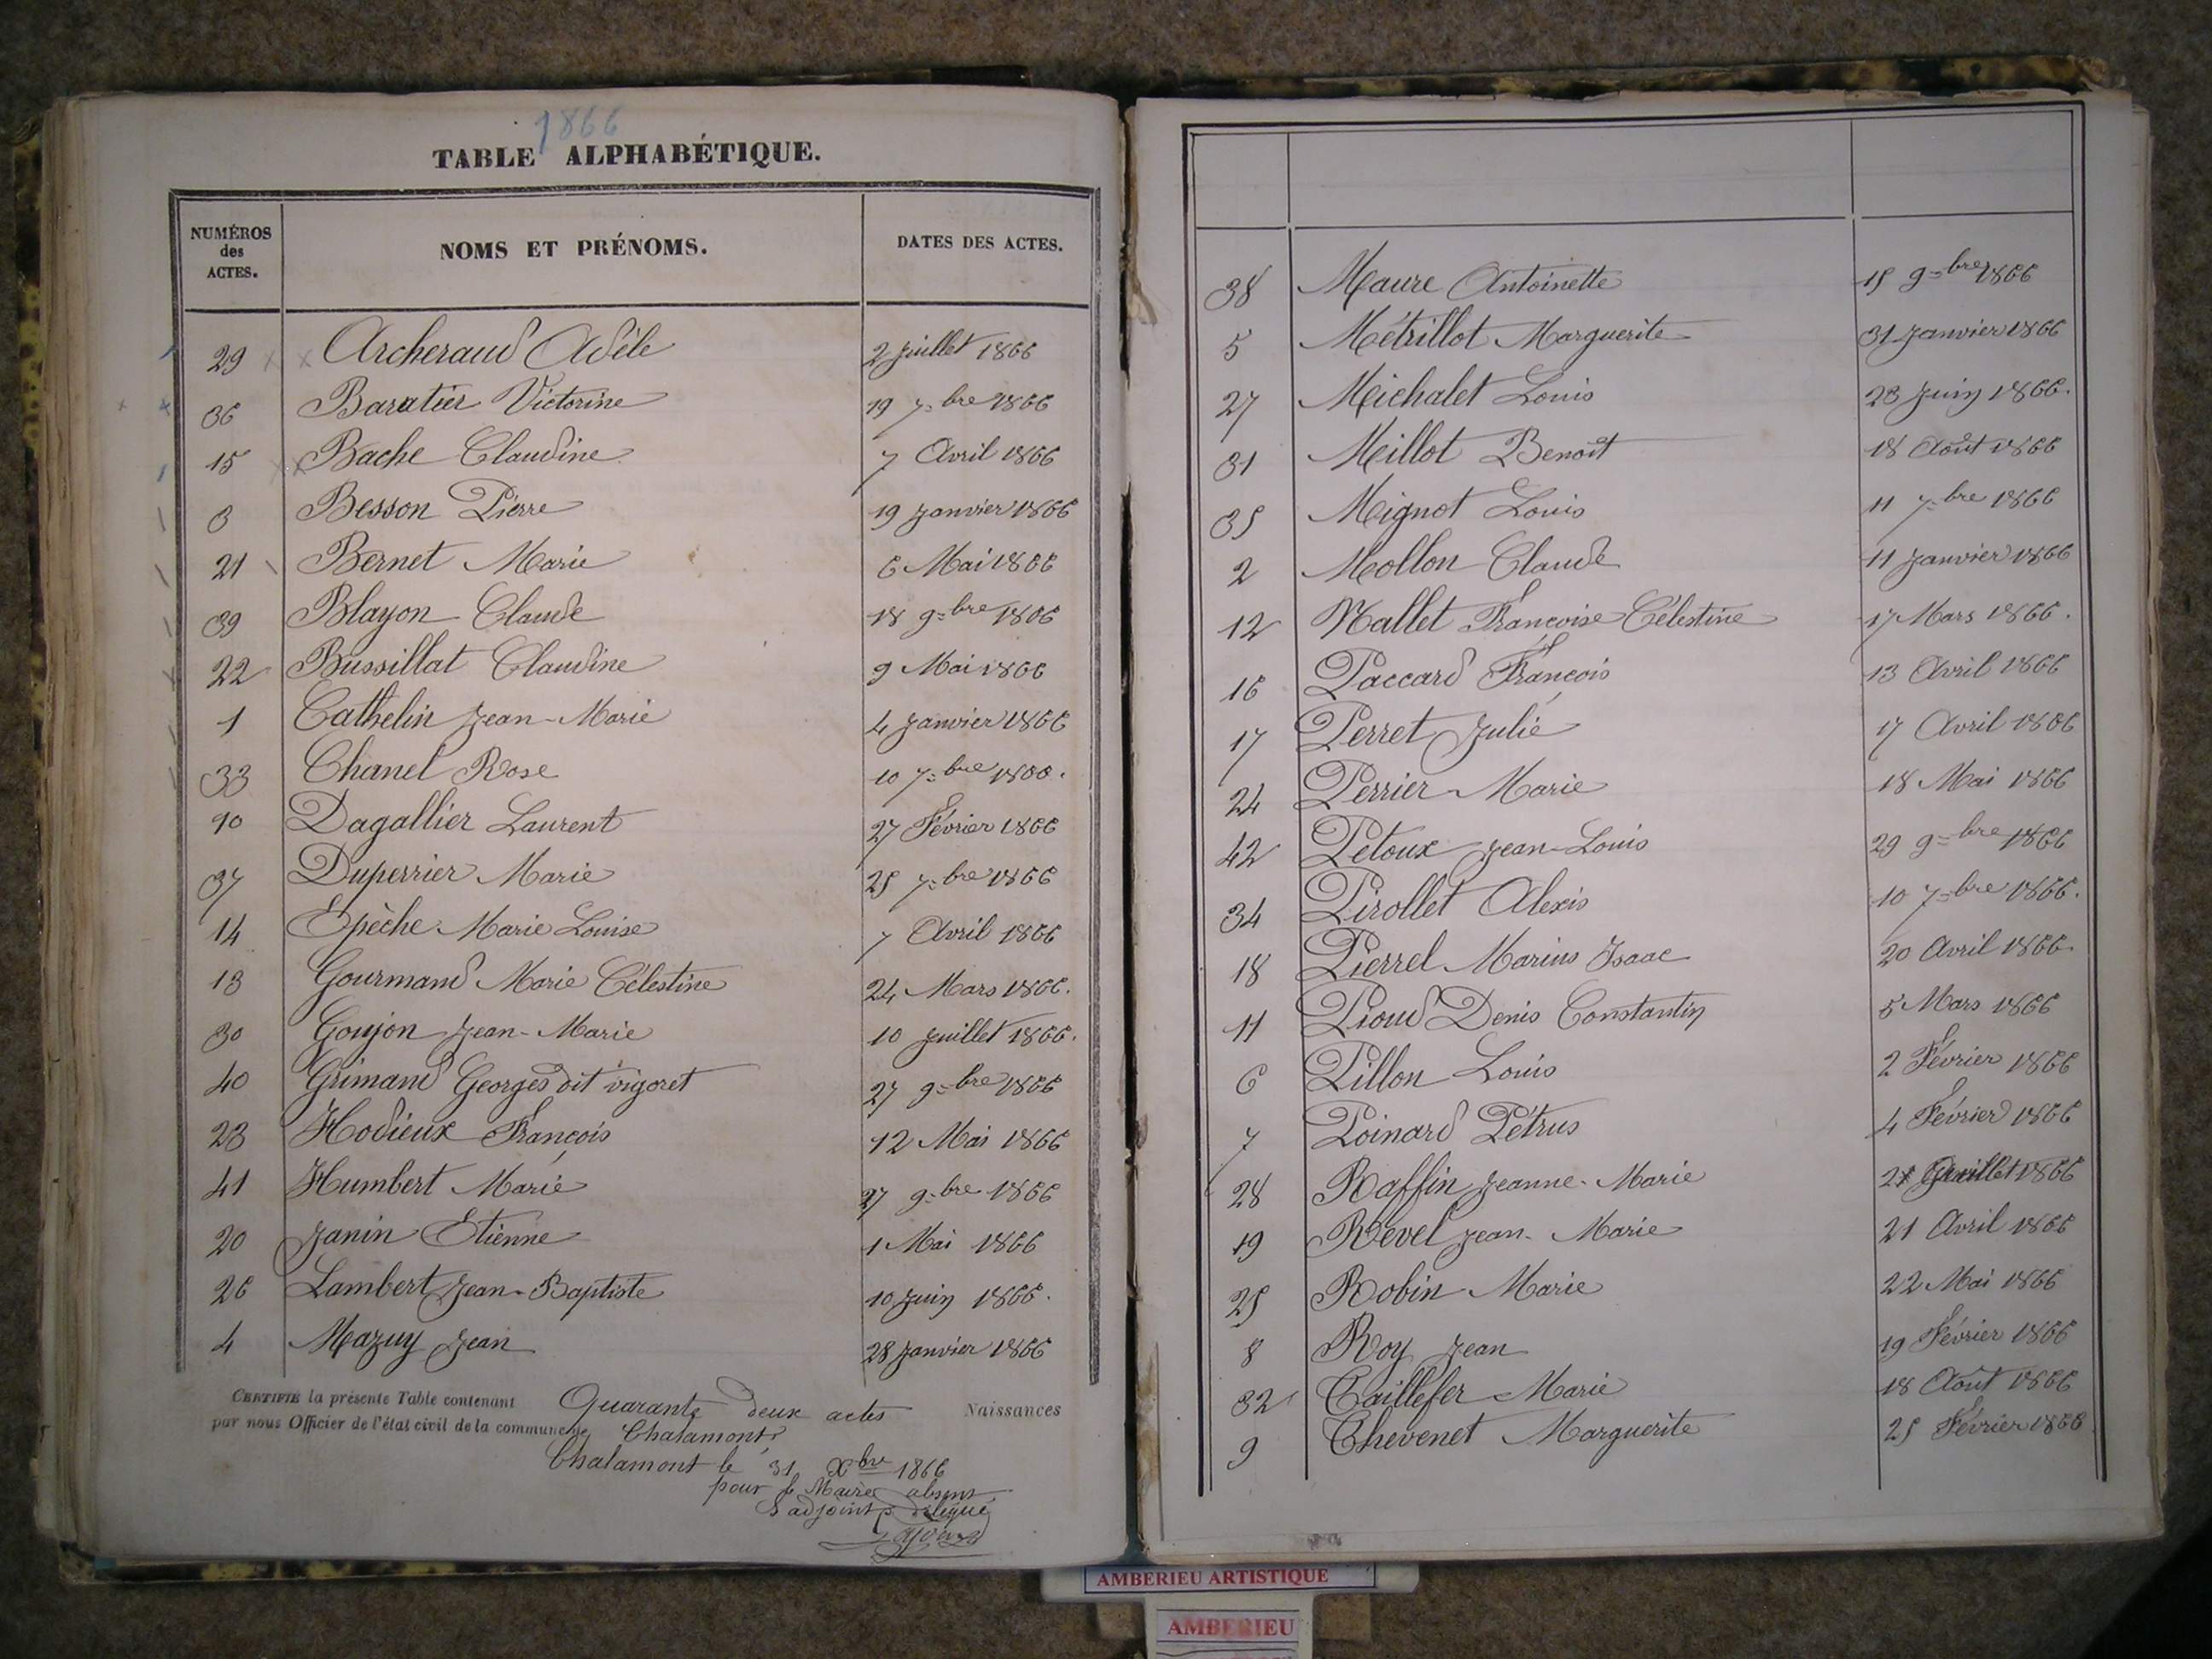 1866
TABLE ALPHABÉTIQUE.
NUMÉROS des ACTES. NOMS ET PRÉNOMS. DATES DES ACTES.
29 Archeraud Adèle 2 Juillet 1866
36 Baratier Victorine 19 7=bre 1866
15 Bache Claudine 7 Avril 1866
3 Besson Pierre 19 Janvier 1866
21 Bernet Marie 6 Mai 1866
39 Blayon Claude 18 9=bre 1866
22 Bussillat Claudine 9 Mai 1866
1 Cathelin Jean-Marie 4 Janvier 1866
33 Chanel Rose 10 7=bre 1866.
10 Dagallier Laurent 27 Février 1866
37 Duperrier Marie 25 7=bre 1866
14 Epèche Marie Louise 7 Avril 1866
13 Gourmand Marie Célestine 24 Mars 1866.
30 Goujon Jean-Marie 10 Juillet 1866.
40 Grimand Georges dit vigoret 27 9=bre 1866
23 Hodieux François 12 Mai 1866
41 Humbert Marie 27 9=bre 1866
20 Janin Etienne 1 Mai 1866
26 Lambert Jean-Baptiste 10 Juin 1866.
4 Mazuy Jean 28 Janvier 1866
CERTIFIE la présente Table contenant Quarante deux actes Naissances
par nous Officier de l'état civil de la commune de Chalamont
Chalamont le 31 Xbre 1866
pour le Maire absent
L'adjoint délégué
38 Maure Antoinette 15 9=bre 1866
5 Métrillot Marguerite 31 Janvier 1866
27 Michalet Louis 23 Juin 1866.
31 Millot Benoît 18 Août 1866
35 Mignot Louis 11 7=bre 1866
2 Mollon Claude 11 Janvier 1866
12 Nallet Françoise Célestine 17 Mars 1866.
16 Paccard François 13 Avril 1866
17 Perret Julie 17 Avril 1866
24 Perrier Marie 18 Mai 1866
42 Petoux Jean-Louis 29 9=bre 1866
34 Pirollet Alexis 10 7=bre 1866.
18 Pierrel Marius Isaac 20 Avril 1866.
11 Pioud Denis Constantin 5 Mars 1866
6 Pillon Louis 2 Février 1866
7 Poinard Pétrus 4 Février 1866
28 Raffin Jeanne-Marie Juillet 1866
19 Revel Jean-Marie 21 Avril 1866
25 Robin Marie 22 Mai 1866
8 Roy Jean 19 Février 1866
32 Taillefer Marie 18 Août 1866
9 Thevenet Marguerite 25 Février 1866
AMBERIEU ARTISTIQUE
AMBERIEU